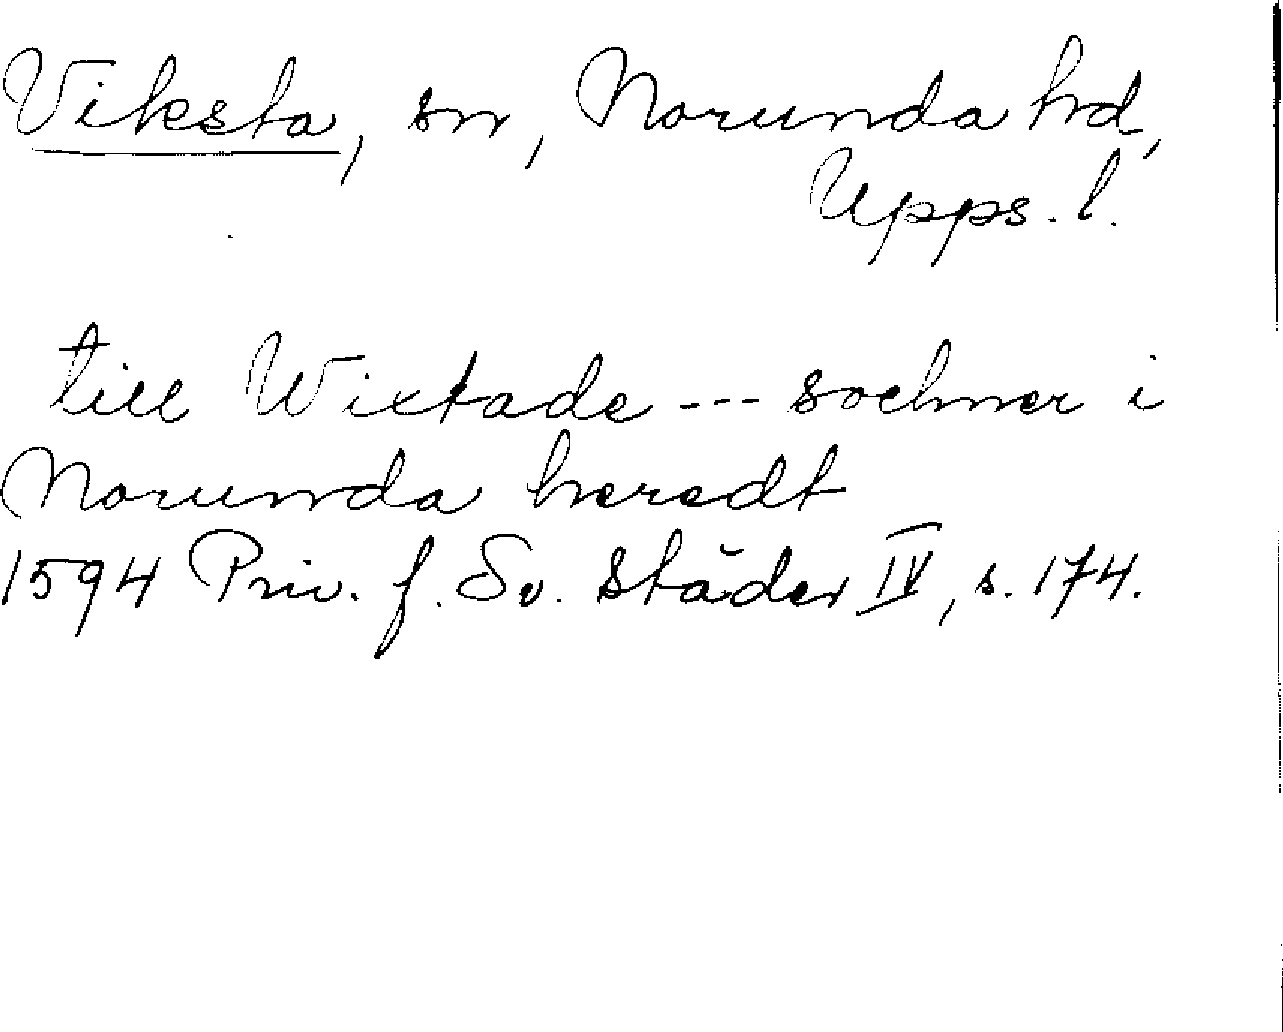 Viksta, sn, Norunda hd,
Upps. l.
till Wixtade --- sochner i
Norunda heredt
1594 Priv. f. Sv. städer IV, s. 174.